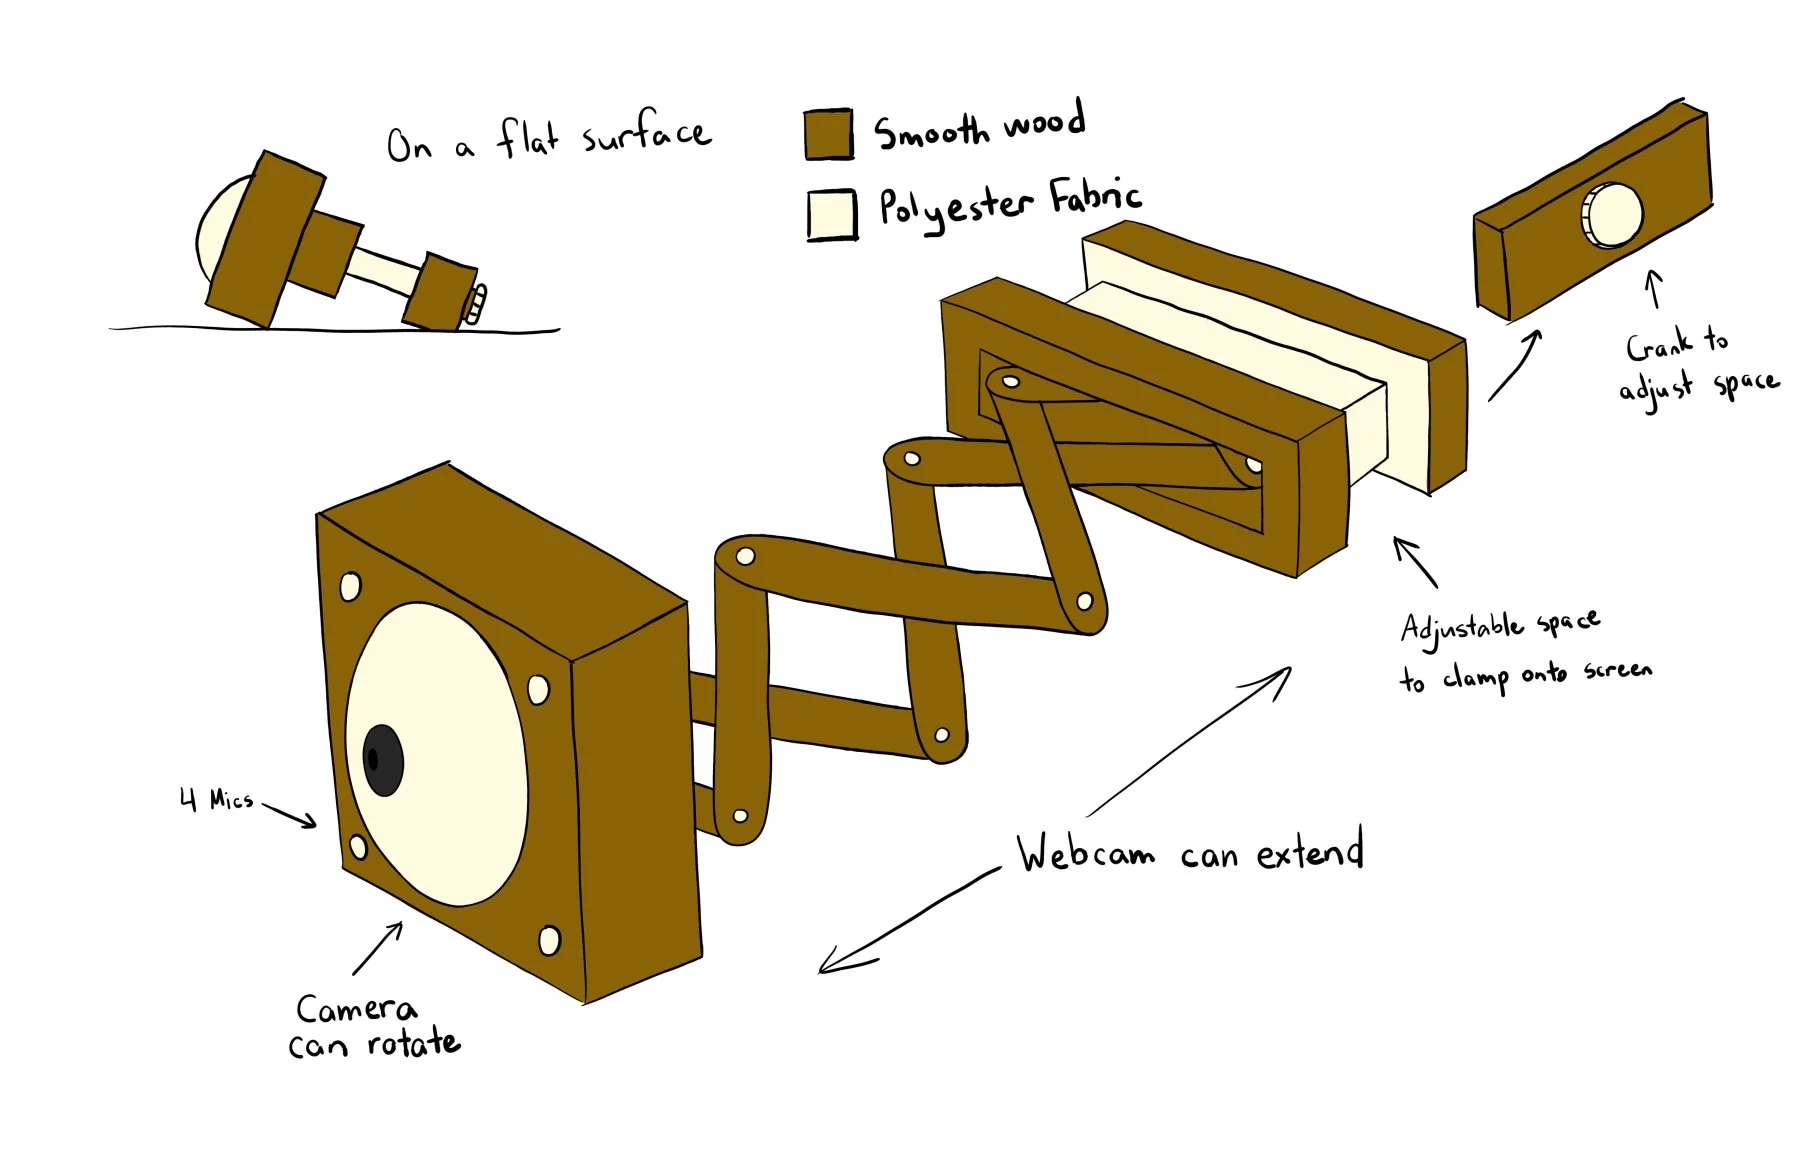 On a flat surface
Smooth wood
Polyester Fabric
Crank to
adjust space
Adjustable space
to clamp onto screen
Webcam can extend
4 Mics
Camera
can rotate